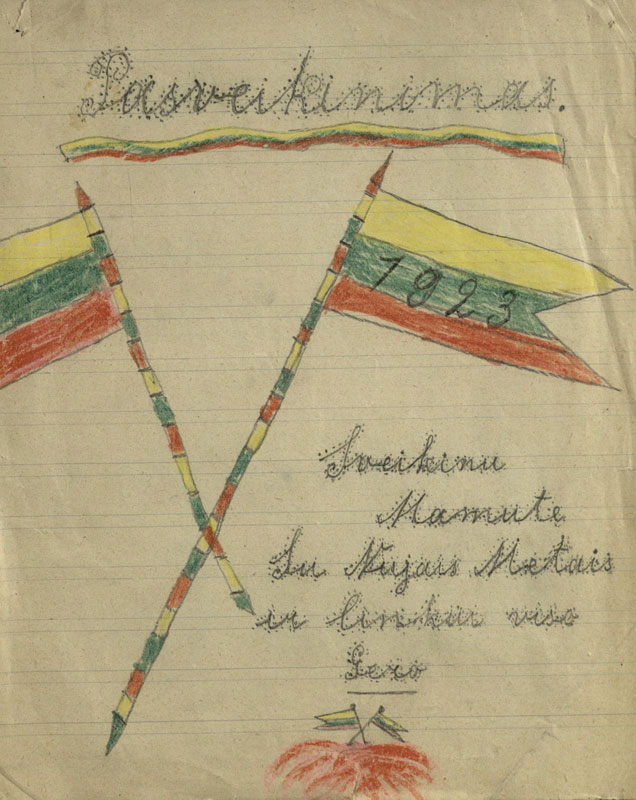 Pasveikinimas.
1923
Sveikinu
Mamute
Su Nujais Metais
ir linkiu viso
Gero